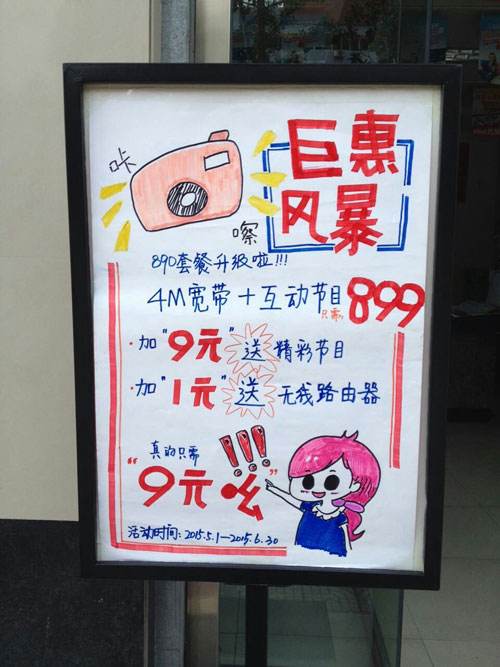 咔
嚓
巨惠
风暴
890套餐升级啦!!!
4M宽带+互动节目只需899
·加"9元"送精彩节目
·加"1元"送无线路由器
真的只需
"9元吆!!!"
活动时间:2015.5.1—2015.6.30